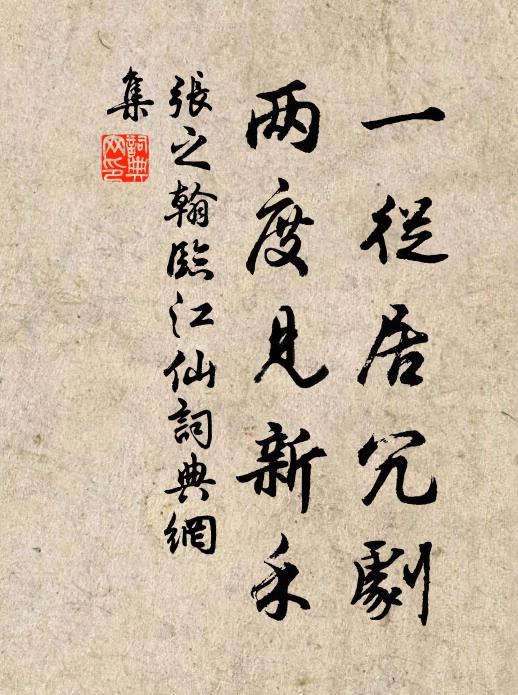 一從居冗劇
两度見新禾
張之翰臨江仙詞典網
集
詞典
网印